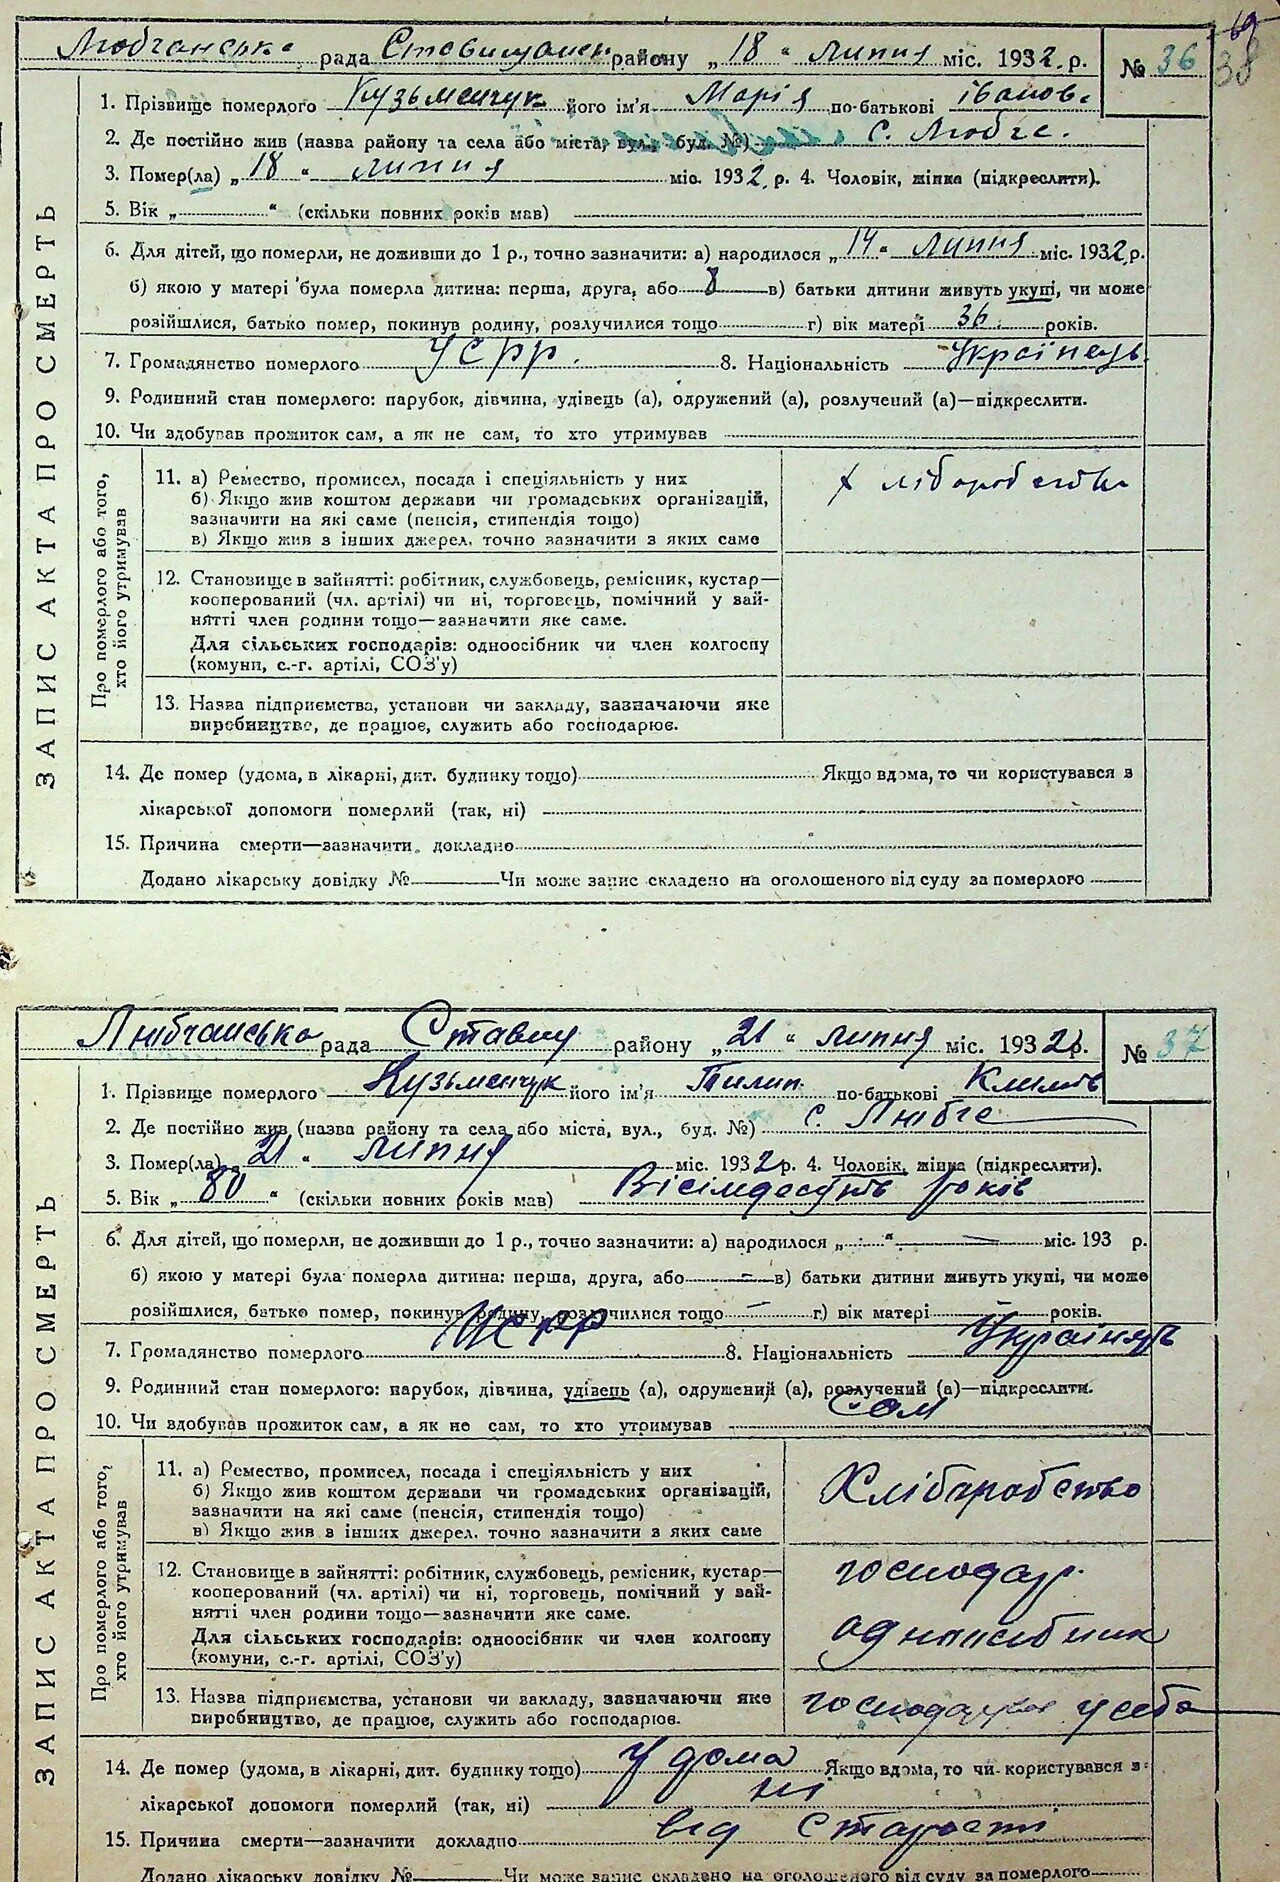 69
38
Любчанська рада Ставищанськ району „18“ липня міс. 1932 р. № 36
1. Прізвище померлого Кузьменчук його ім'я Марія по-батькові Іванов.
2. Де постійно жив (назва району та села або міста, вул., буд. №) с. Любче.
3. Помер(ла) „18“ липня міс. 1932 р. 4. Чоловік, жінка (підкреслити).
5. Вік „ “ (скільки повних років мав)
6. Для дітей, що померли, не доживши до 1 р., точно зазначити: а) народилося „14“ липня міс. 1932 р.
б) якою у матері була померла дитина: перша, друга, або 8 в) батьки дитини живуть укупі, чи може
розійшлися, батько помер, покинув родину, розлучилися тощо г) вік матері 36. років.
7. Громадянство померлого УСРР. 8. Національність Українець
9. Родинний стан померлого: парубок, дівчина, удівець (а), одружений (а), розлучений (а)—підкреслити.
10. Чи здобував прожиток сам, а як не сам, то хто утримував
ЗАПИС АКТА ПРО СМЕРТЬ
Про померлого або того, хто його утримував
11. а) Ремество, промисел, посада і спеціяльність у них
б) Якщо жив коштом держави чи громадських організацій,
зазначити на які саме (пенсія, стипендія тощо)
в) Якщо жив з інших джерел, точно зазначити з яких саме
хліборобство
12. Становище в зайнятті: робітник, службовець, ремісник, кустар—
кооперований (чл. артілі) чи ні, торговець, помічний у зай-
нятті член родини тощо—зазначити яке саме.
Для сільських господарів: одноосібник чи член колгоспу
(комуни, с.-г. артілі, СОЗ'у)
13. Назва підприємства, установи чи закладу, зазначаючи яке
виробництво, де працює, служить або господарює.
14. Де помер (удома, в лікарні, дит. будинку тощо) Якщо вдома, то чи користувався з
лікарської допомоги померлий (так, ні)
15. Причина смерти—зазначити докладно
Додано лікарську довідку № Чи може запис складено на оголошеного від суду за померлого
Любчанська рада Ставищ району „21“ липня міс. 1932 р. № 37
1. Прізвище померлого Кузьменчук його ім'я Пилип по-батькові Климів
2. Де постійно жив (назва району та села або міста, вул., буд. №) с. Любче
3. Помер(ла) „21“ липня міс. 1932 р. 4. Чоловік, жінка (підкреслити).
5. Вік „80“ (скільки повних років мав) Вісімдесять років
6. Для дітей, що померли, не доживши до 1 р., точно зазначити: а) народилося „ “ — міс. 193 р.
б) якою у матері була померла дитина: перша, друга, або — в) батьки дитини живуть укупі, чи може
розійшлися, батько помер, покинув родину, розлучилися тощо — г) вік матері — років.
7. Громадянство померлого УСРР 8. Національність Українець
9. Родинний стан померлого: парубок, дівчина, удівець (а), одружений (а), розлучений (а)—підкреслити.
10. Чи здобував прожиток сам, а як не сам, то хто утримував сам
ЗАПИС АКТА ПРО СМЕРТЬ
Про померлого або того, хто його утримував
11. а) Ремество, промисел, посада і спеціяльність у них
б) Якщо жив коштом держави чи громадських організацій,
зазначити на які саме (пенсія, стипендія тощо)
в) Якщо жив з інших джерел, точно зазначити з яких саме
Хліборобство
12. Становище в зайнятті: робітник, службовець, ремісник, кустар—
кооперований (чл. артілі) чи ні, торговець, помічний у зай-
нятті член родини тощо—зазначити яке саме.
Для сільських господарів: одноосібник чи член колгоспу
(комуни, с.-г. артілі, СОЗ'у)
господар
одноосібник
13. Назва підприємства, установи чи закладу, зазначаючи яке
виробництво, де працює, служить або господарює.
господарює у себе
14. Де помер (удома, в лікарні, дит. будинку тощо) У дома Якщо вдома, то чи користувався з
лікарської допомоги померлий (так, ні) ні
15. Причина смерти—зазначити докладно від Старости
Додано лікарську довідку № Чи може запис складено на оголошеного від суду за померлого